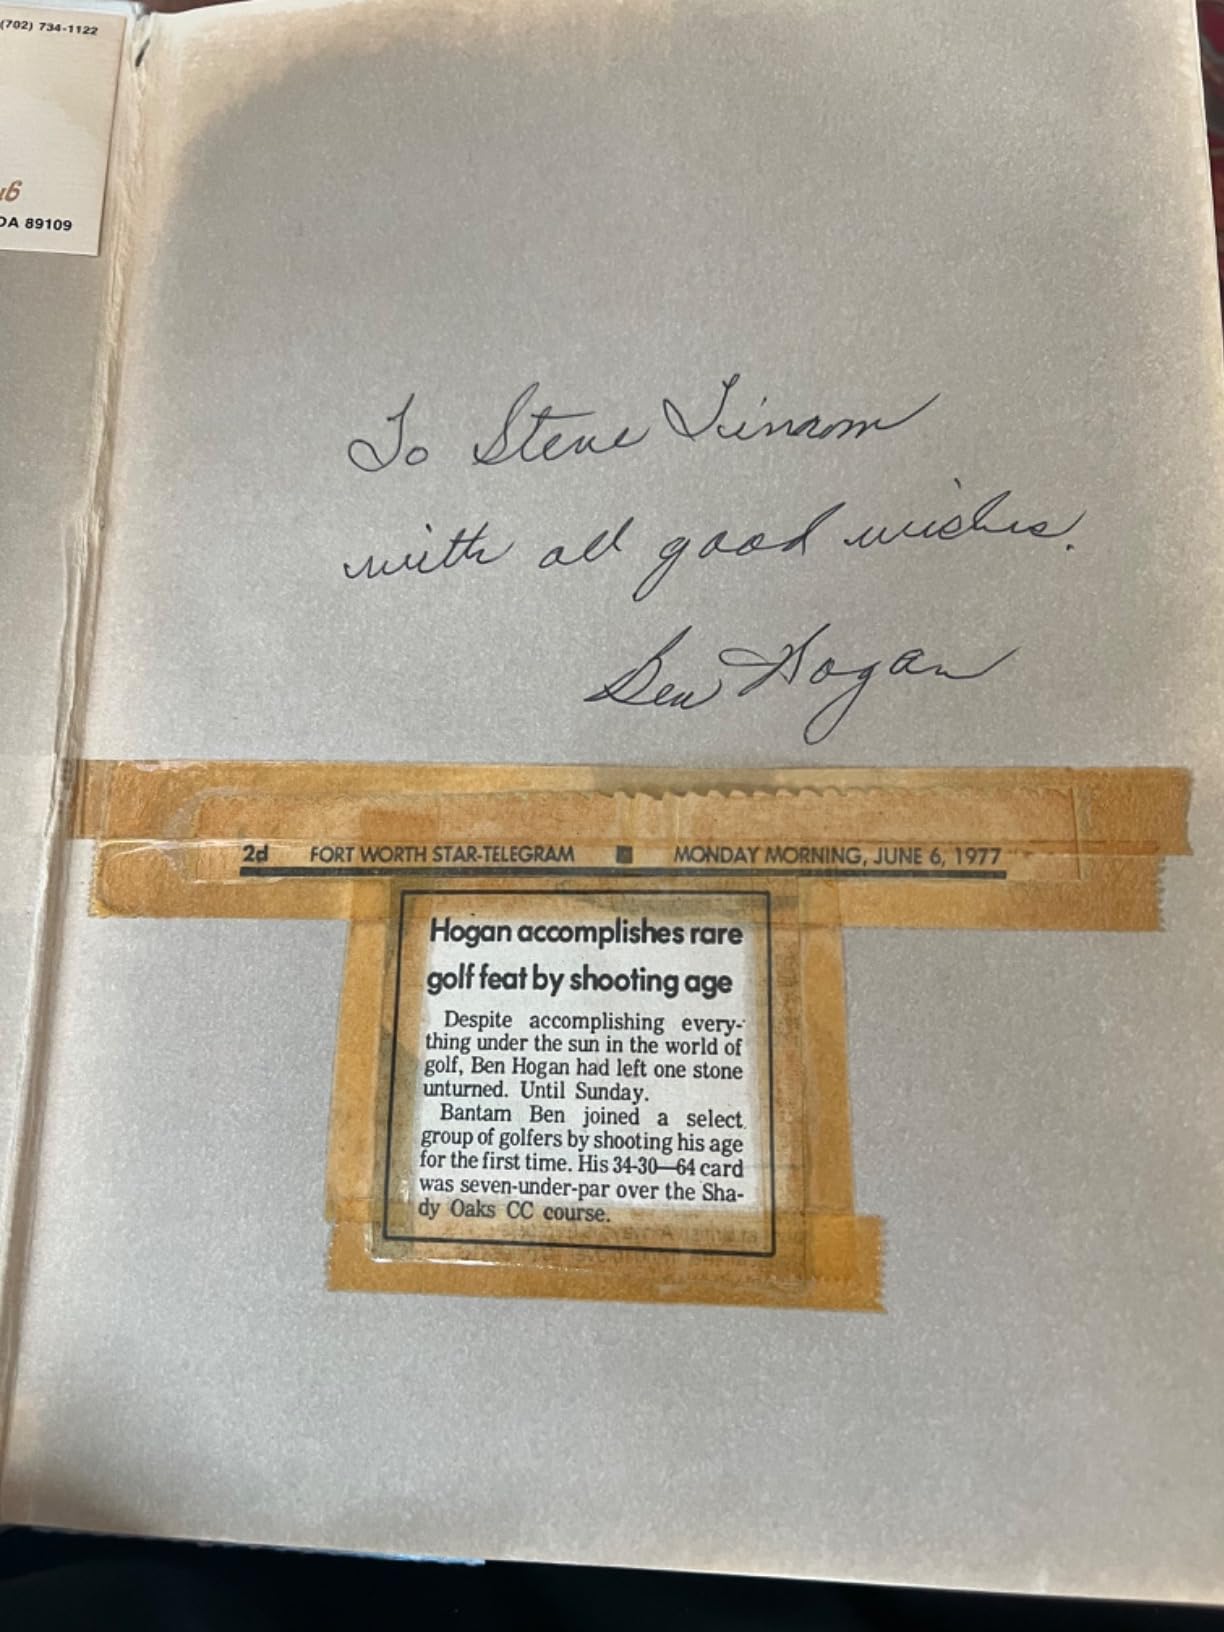 (702) 734-1122
DA 89109
To Steve
with all good wishes.
Ben Hogan
2d FORT WORTH STAR-TELEGRAM ■ MONDAY MORNING, JUNE 6, 1977
Hogan accomplishes rare
golf feat by shooting age
Despite accomplishing every-
thing under the sun in the world of
golf, Ben Hogan had left one stone
unturned. Until Sunday.
Bantam Ben joined a select
group of golfers by shooting his age
for the first time. His 34-30—64 card
was seven-under-par over the Sha-
dy Oaks CC course.